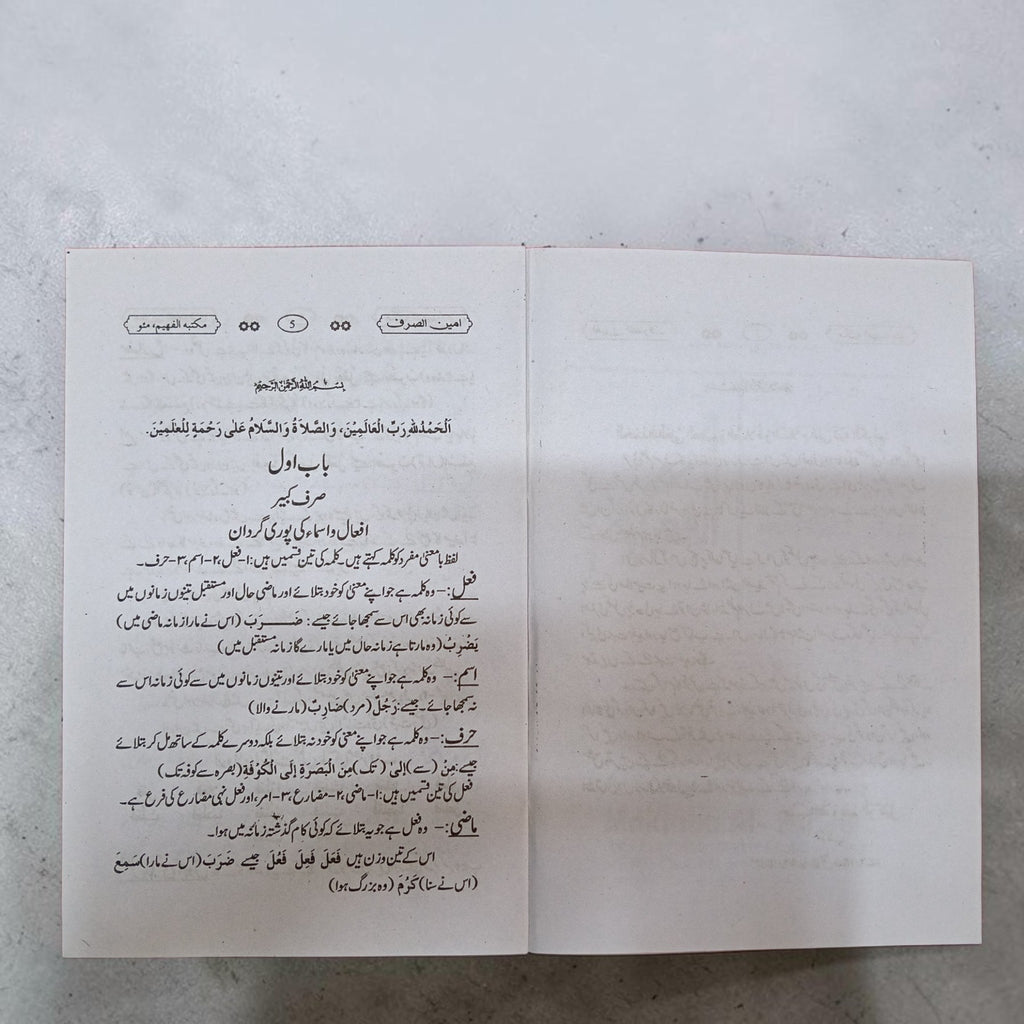 امین الصرف 5 مکتبہ الفہیم، مئو
بسم الله الرحمن الرحيم
اَلْحَمْدُ لِلّٰهِ رَبِّ الْعَالَمِيْنَ، وَالصَّلَاةُ وَالسَّلَامُ عَلٰى رَحْمَةٍ لِلْعٰلَمِيْنَ۔
باب اول
صرف کبیر
افعال و اسماء کی پوری گردان
لفظ بامعنیٰ مفرد کو کلمہ کہتے ہیں۔ کلمہ کی تین قسمیں ہیں: ۱-فعل، ۲-اسم، ۳-حرف۔
فعل:- وہ کلمہ ہے جو اپنے معنیٰ کو خود بتلائے اور ماضی حال اور مستقبل تینوں زمانوں میں
سے کوئی زمانہ بھی اس سے سمجھا جائے جیسے: ضَرَبَ (اس نے مارا زمانہ ماضی میں)
یَضْرِبُ (وہ مارتا ہے زمانہ حال میں یا مارے گا زمانہ مستقبل میں)
اسم:- وہ کلمہ ہے جو اپنے معنیٰ کو خود بتلائے اور تینوں زمانوں میں سے کوئی زمانہ اس سے
نہ سمجھا جائے۔ جیسے: رَجُلٌ (مرد) ضَارِبٌ (مارنے والا)
حرف:- وہ کلمہ ہے جو اپنے معنیٰ کو خود نہ بتلائے بلکہ دوسرے کلمہ کے ساتھ مل کر بتلائے
جیسے: مِنْ (سے) اِلیٰ (تک) مِنَ الْبَصَرَةِ إِلَى الْكُوْفَةِ (بصرہ سے کوفہ تک)
فعل کی تین قسمیں ہیں: ۱-ماضی، ۲-مضارع، ۳-امر، اور فعل نہی مضارع کی فرع ہے۔
ماضی:- وہ فعل ہے جو یہ بتلائے کہ کوئی کام گذشتہ زمانہ میں ہوا۔
اس کے تین وزن ہیں فَعَلَ فَعِلَ فَعُلَ جیسے ضَرَبَ (اس نے مارا) سَمِعَ
(اس نے سنا) كَرُمَ (وہ بزرگ ہوا)